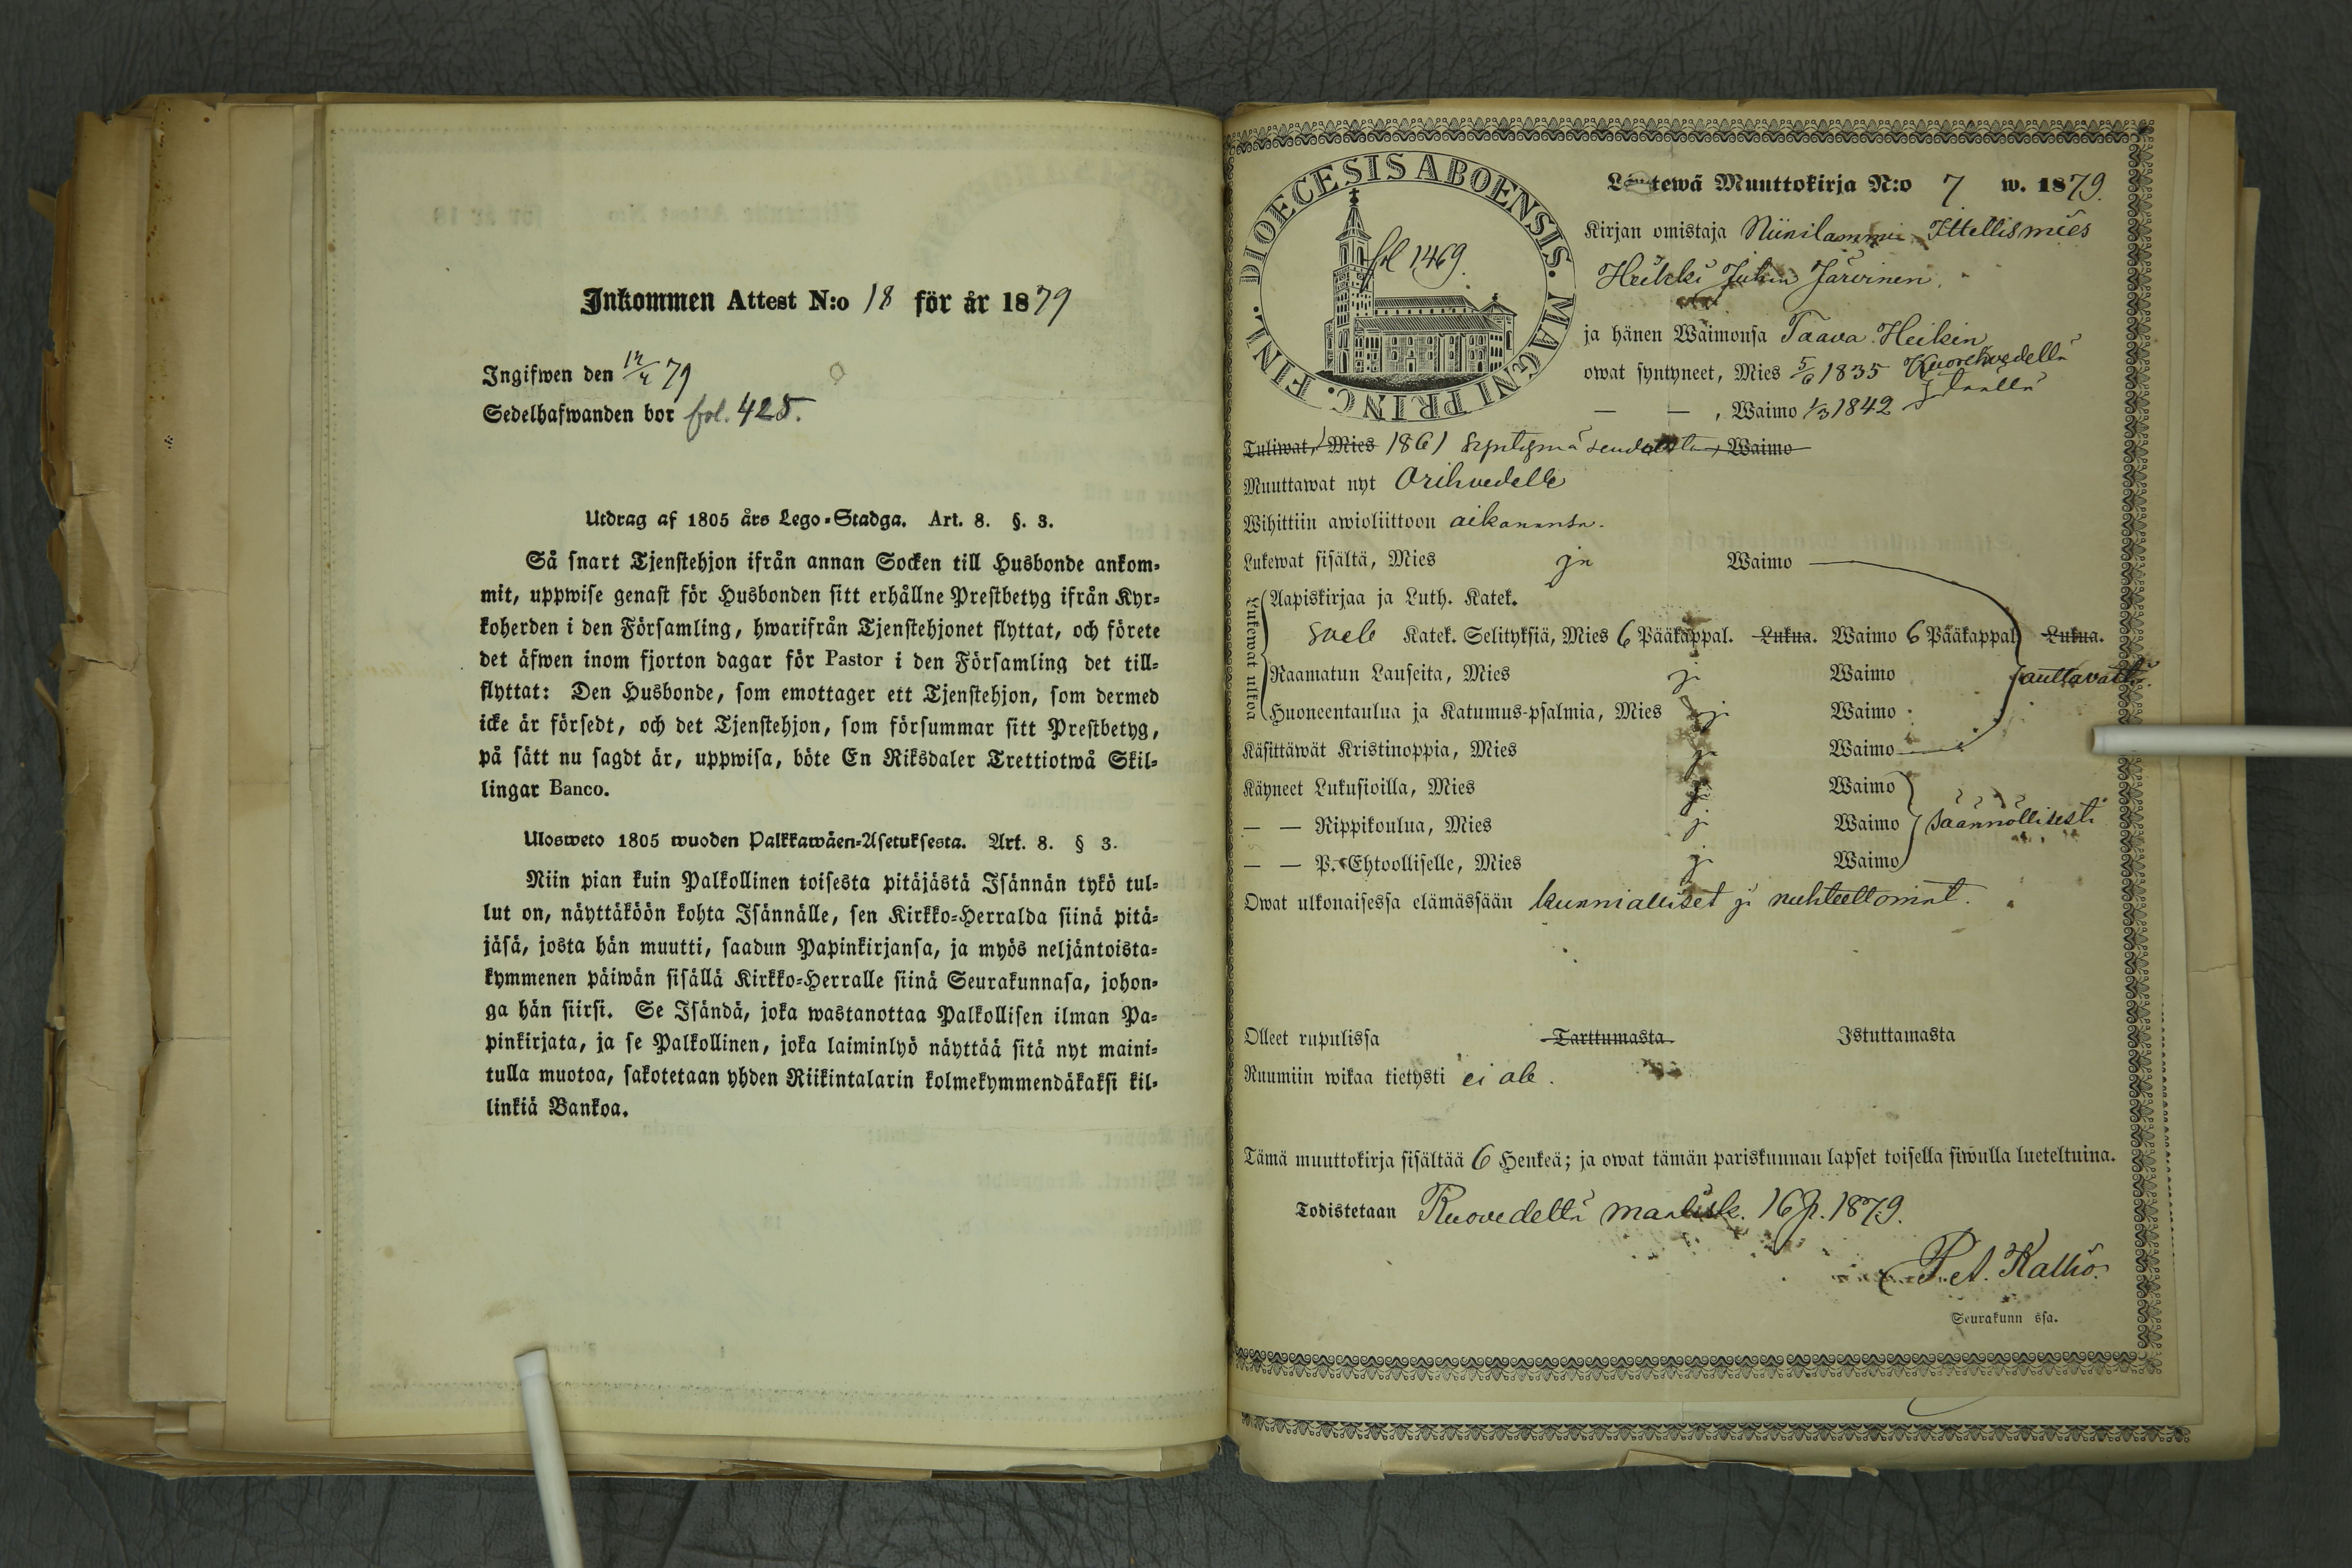 Inkommen Attest N:o 18 för år 1879
Ingifwen den 12/4 79
Sedelhafwanden bor fol. 428.
Utdrag af 1805 års Lego-Stadga. Art. 8. §. 3.
Så snart Tjenstehjon ifrån annan Socken till Husbonde ankom-
mit, uppwise genast för Husbonden sitt erhållne Prestbetyg ifrån Kyr-
koherden i den Församling, hwarifrån Tjenstehjonet flyttat, och förete
det äfwen inom fjorton dagar för Pastor i den Församling det till-
flyttat: Den Husbonde, som emottager ett Tjenstehjon, som dermed
icke är försedt, och det Tjenstehjon, som försummar sitt Prestbetyg,
på sätt nu sagdt är, uppwisa, böte En Riksdaler Trettiotwå Skil-
lingar Banco.
Ulosweto 1805 wuoden Palkkawäen-Asetuksesta. Art. 8. § 3.
Niin pian kuin Palkollinen toisesta pitäjästä Isännän tykö tul-
lut on, näyttäköön kohta Isännälle, sen Kirkko-Herralda siinä pitä-
jäsä, josta hän muutti, saadun Papinkirjansa, ja myös neljäntoista-
kymmenen päiwän sisällä Kirkko-Herralle siinä Seurakunnasa, johon-
ga hän siirsi. Se Isändä, joka wastanottaa Palkollisen ilman Pa-
pinkirjata, ja se Palkollinen, joka laiminlyö näyttää sitä nyt maini-
tulla muotoa, sakotetaan yhden Riikintalarin kolmekymmendäkaksi kil-
linkiä Bankoa.
DIOECESIS ABOENSIS. MAGNI PRINC. FINL.
fol 1469.
Lähtewä Muuttokirja N:o 7 w. 1879.
Kirjan omistaja Niinilammi Ittellismies
Heikki Juhan Järvinen.
ja hänen Waimonsa Taava Heikin
owat syntyneet, Mies 5/6 1835 Kuorehvedellä
— — , Waimo 1/3 1842 j täällä
Tuliwat, Mies 1861 Syntymä seudulta, Waimo
Muuttawat nyt Orihvedelle
Wihittiin awioliittoon aikanansa.
Lukewat sisältä, Mies ja Waimo
Lukewat ulkoa
Aapiskirjaa ja Luth. Katek.
Katek. Selityksiä, Mies 6 Pääkappal. Lukua. Waimo 6 Pääkappal. Lukua.
Raamatun Lauseita, Mies j Waimo
auttavasti
Huoneentaulua ja Katumus-psalmia, Mies j Waimo
Käsittäwät Kristinoppia, Mies j Waimo
Käyneet Lukusioilla, Mies j Waimo
— — Rippikoulua, Mies j Waimo säännöllisesti
— — P. Ehtoolliselle, Mies j Waimo
Owat ulkonaisessa elämässään kunnialliset j nuhteettomat.
Olleet rupulissa Tarttumasta Istuttamasta
Ruumiin wikaa tietysti ei ole.
Tämä muuttokirja sisältää 6 Henkeä; ja owat tämän pariskunnan lapset toisella siwulla lueteltuina.
Todistetaan Ruovedeltä maalisk. 16 p. 1879.
Pet. Kallio.
Seurakunn ssa.